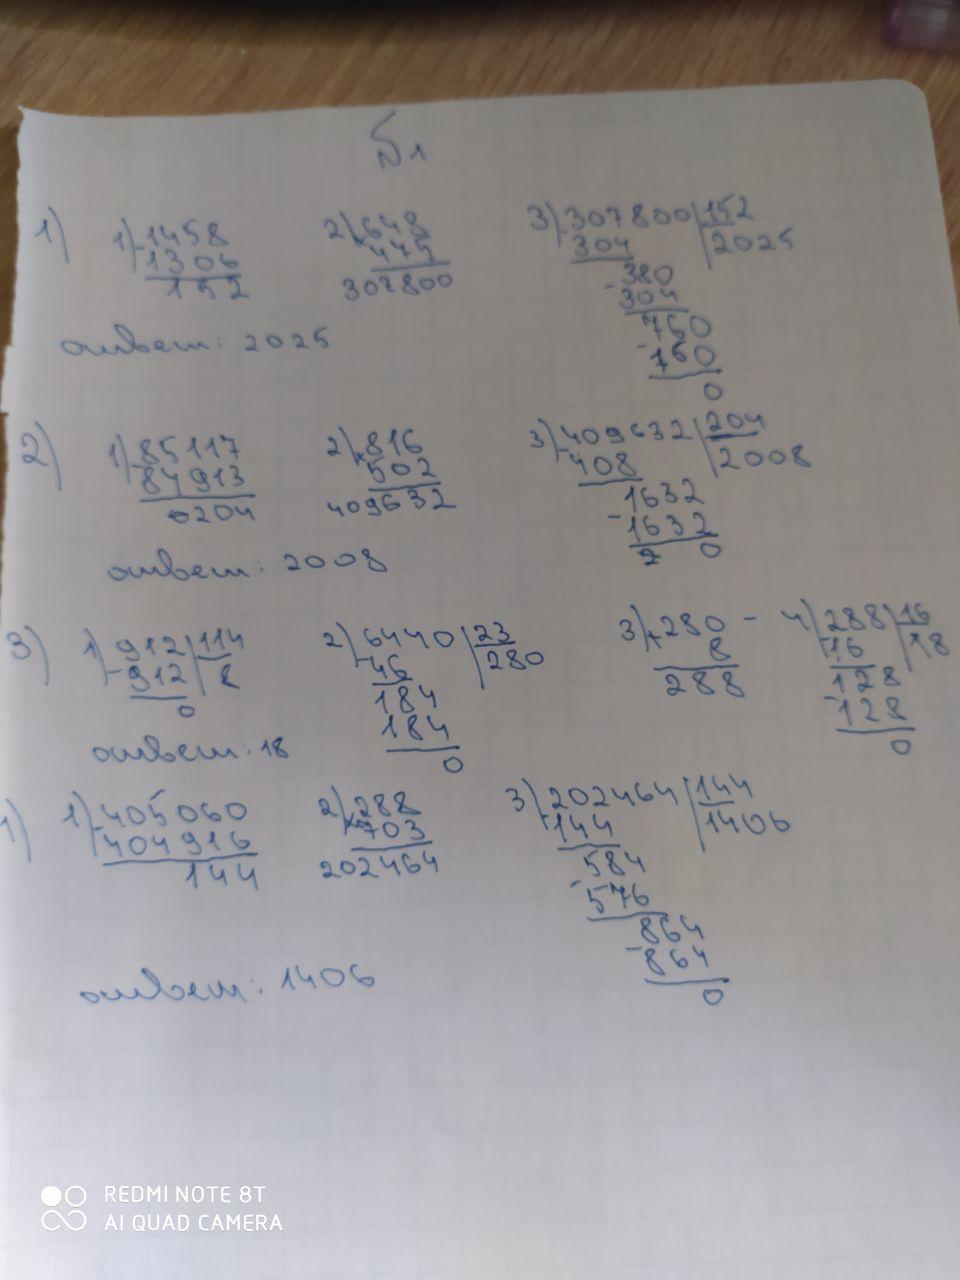 №1
1) 1) -1458 2) ×648 3) -307800 152
1306 475 304 2025
152 307800 -380
304
ответ: 2025 760
-760
0
2) 1) -85117 2) ×816 3) -409632 204
84913 502 408 2008
0204 409632 1632
-1632
ответ: 2008 2 0
3) 1) 912 114 2) 6440 23 3) +280 - 4) 288 16
-912 8 -46 280 8 -16 18
0 184 288 128
184 -128
ответ: 18 0 0
1) 1) -405060 2) ×288 3) -202464 144
404916 703 144 1406
144 202464 584
-576
864
-864
ответ: 1406 0
REDMI NOTE 8T
AI QUAD CAMERA